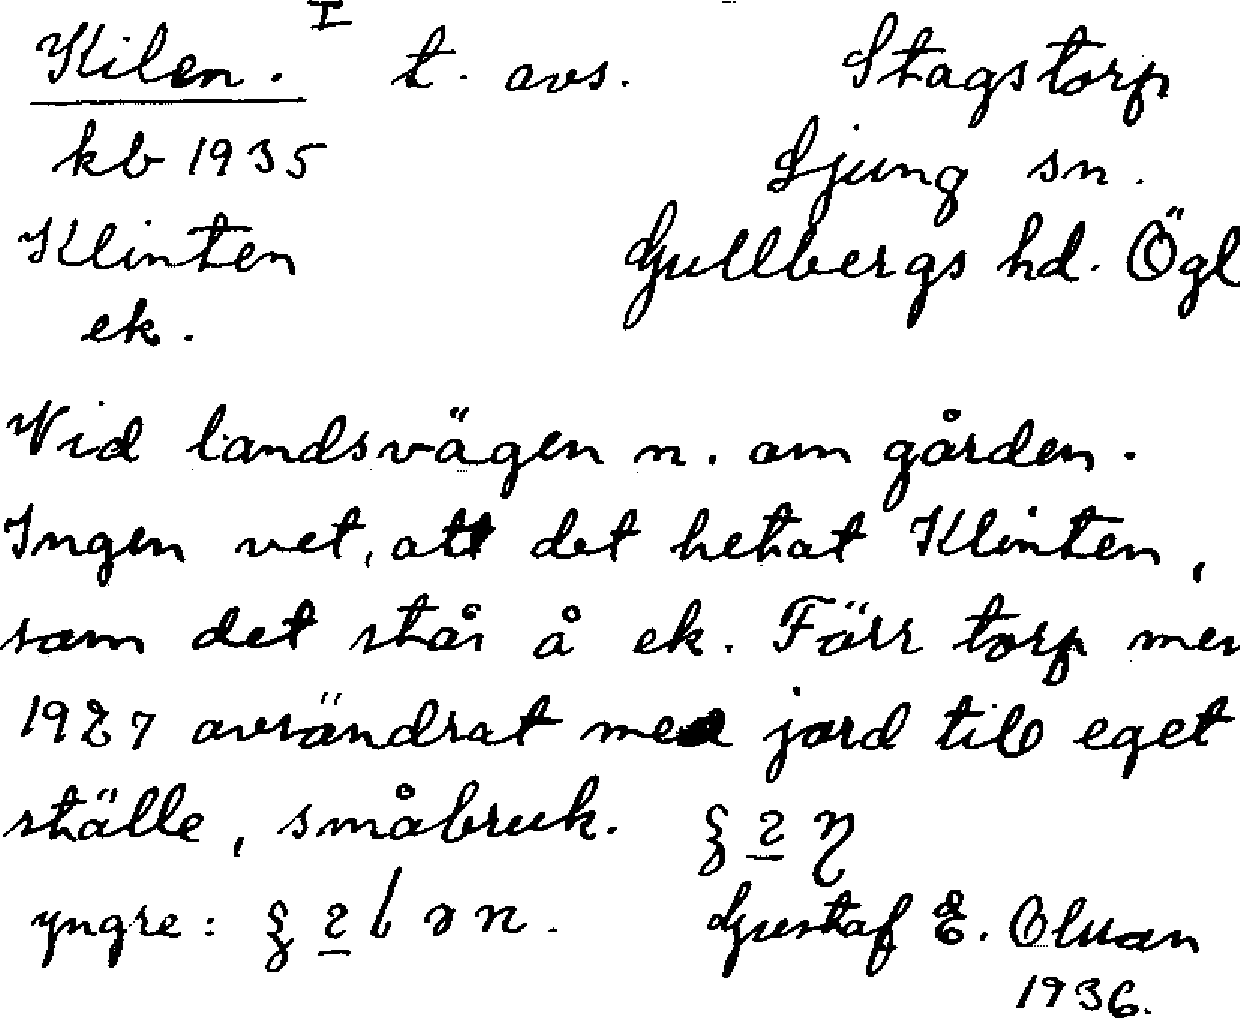 Kilen. I t. avs. Stagstorp
kb 1935 Ljung sn.
Klinten Gullbergs hd. Ögl
ek.
Vid landsvägen n. om gården.
Ingen vet, att det hetat Klinten,
som det står å ek. Förr torp men
1927 avsöndrat med jord till eget
ställe, småbruk.
yngre:
Gustaf E. Olsson
1936.